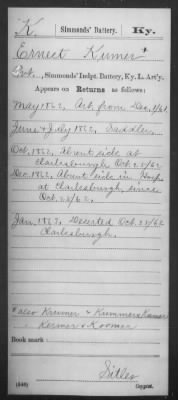 K | Simmonds' Battery. | Ky.
Ernest Kumer
Pvt., Simmonds' Indpt. Battery, Ky. L. Art'y.
Appears on Returns as follows:
May 1862, Art. from Dec. 1/61
June & July 1862, Saddler
Oct. 1862, Absent sick at
Clarlesburgh Oct. 25/62
Dec. 1862, Absent sick in Hosp.
at Clarlesburgh since
Oct. 25/62.
Jan. 1863, Deserted Oct. 25/62
Clarlesburgh.
* also Kreumer & Kummers Kumer
Kermer & Koomer
Book mark:
Sitler
(546) Copyist.